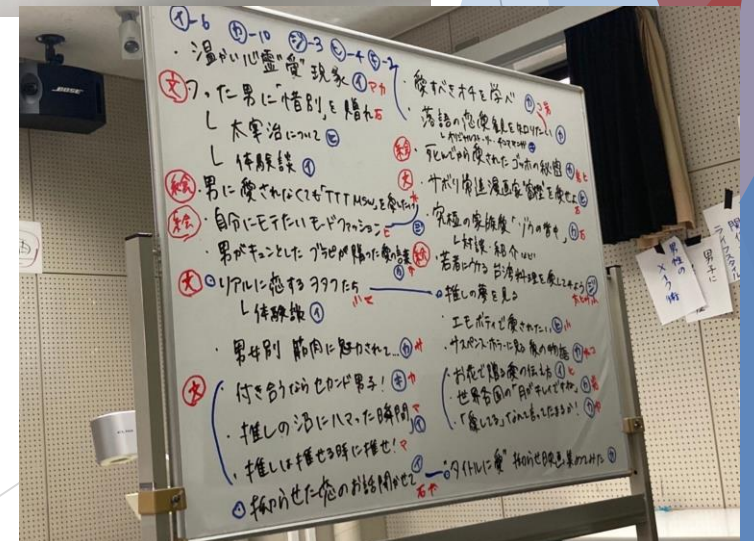 BOSE
イ-6 カ-10 ジ-3 ヒ-4 モ-2
・温かい心霊"愛"現象 イ マカ
文 フった男に「惜別」を贈れ 石
└ 太宰治について ヒ
└ 体験談 イ
絵・男に愛されなくても「TTT MSW」を愛したい
絵・自分にモテたいモードファッション
・男がキュンとした ブラピが贈った愛の言葉
文 リアルに恋するヲタクたち
└ 体験談 イ
・男女別 筋肉に魅力されて… カ サ
文・付き合うならセカンド男子! キ カ
・推しの沼にハマった瞬間 イ
・推しは推せる時に推せ! マ
拗らせた恋のお話聞かせて イ
・愛すべきオチを学べ カ
・落語の恋愛観を知りたい カ
絵・死んでから愛されたゴッホの秘密 カ
文・サボり常連漫画家 管理を愛せよ ヒ
・究極の家族愛「ゾウの背中」 カ 石
└ 対談・紹介など
絵・若者にウケる台湾料理を愛してみよう ジ
推しの夢を見る
・エモボディで愛されたい ヒ
・サスペンスホラーに見る愛の物語 カ
・お花で贈る愛の伝え方 イ ヒ
・世界各国の「月がキレイですね」 カ
・「愛してる」なんて言ってたまるか! カ
"タイトルに愛" 拗らせ映画集めてみた カ
男性の
×う術
男子に
ライフスタイル